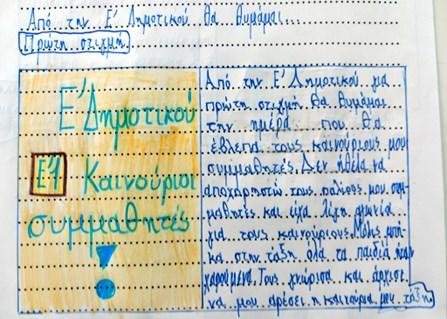 Από την Ε' Δημοτικού θα θυμάμαι...
Πρώτη στιγμή
Ε' Δημοτικού
Ε'1 Καινούριοι
συμμαθητές
!
Από την Ε' Δημοτικού μια
πρώτη στιγμή θα θυμάμαι
την ημέρα που θα
έβλεπα τους καινούριους μου
συμμαθητές. Δεν ήθελα να
αποχαρηστώ τους παλιούς μου συμ-
μαθητές και είχα λίγη αγωνία
για τους καινούριους. Μόλις μπή-
κα στην τάξη όλα τα παιδιά ήταν
χαρούμενα. Τους γνώρισα και άρχισε
να μου αρέσει η καινούρια μου τάξη.